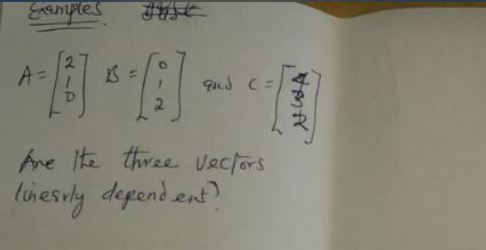 Examples
A = [2 1 0] B = [0 1 2] and C = [4 3 2]
Are the three vectors
linearly dependent?